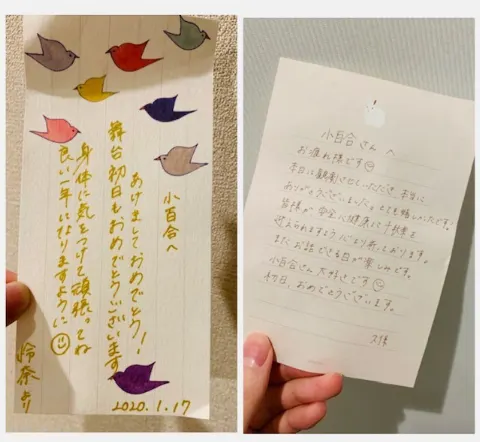 小百合へ
あけましておめでとう!
舞台初日もおめでとうございます
身体に気をつけて頑張ってね
良い年になりますように
怜奈より
2020.1.17
小百合さんへ
お疲れ様です
本日は観劇させていただき、本当に
ありがとうございました。とても嬉しいかったです!
皆様が安全に健康に千秋楽を
迎えられますよう心より祈っております。
またお話できる日が楽しみです。
小百合さん大好きです
初日、おめでとうございます。